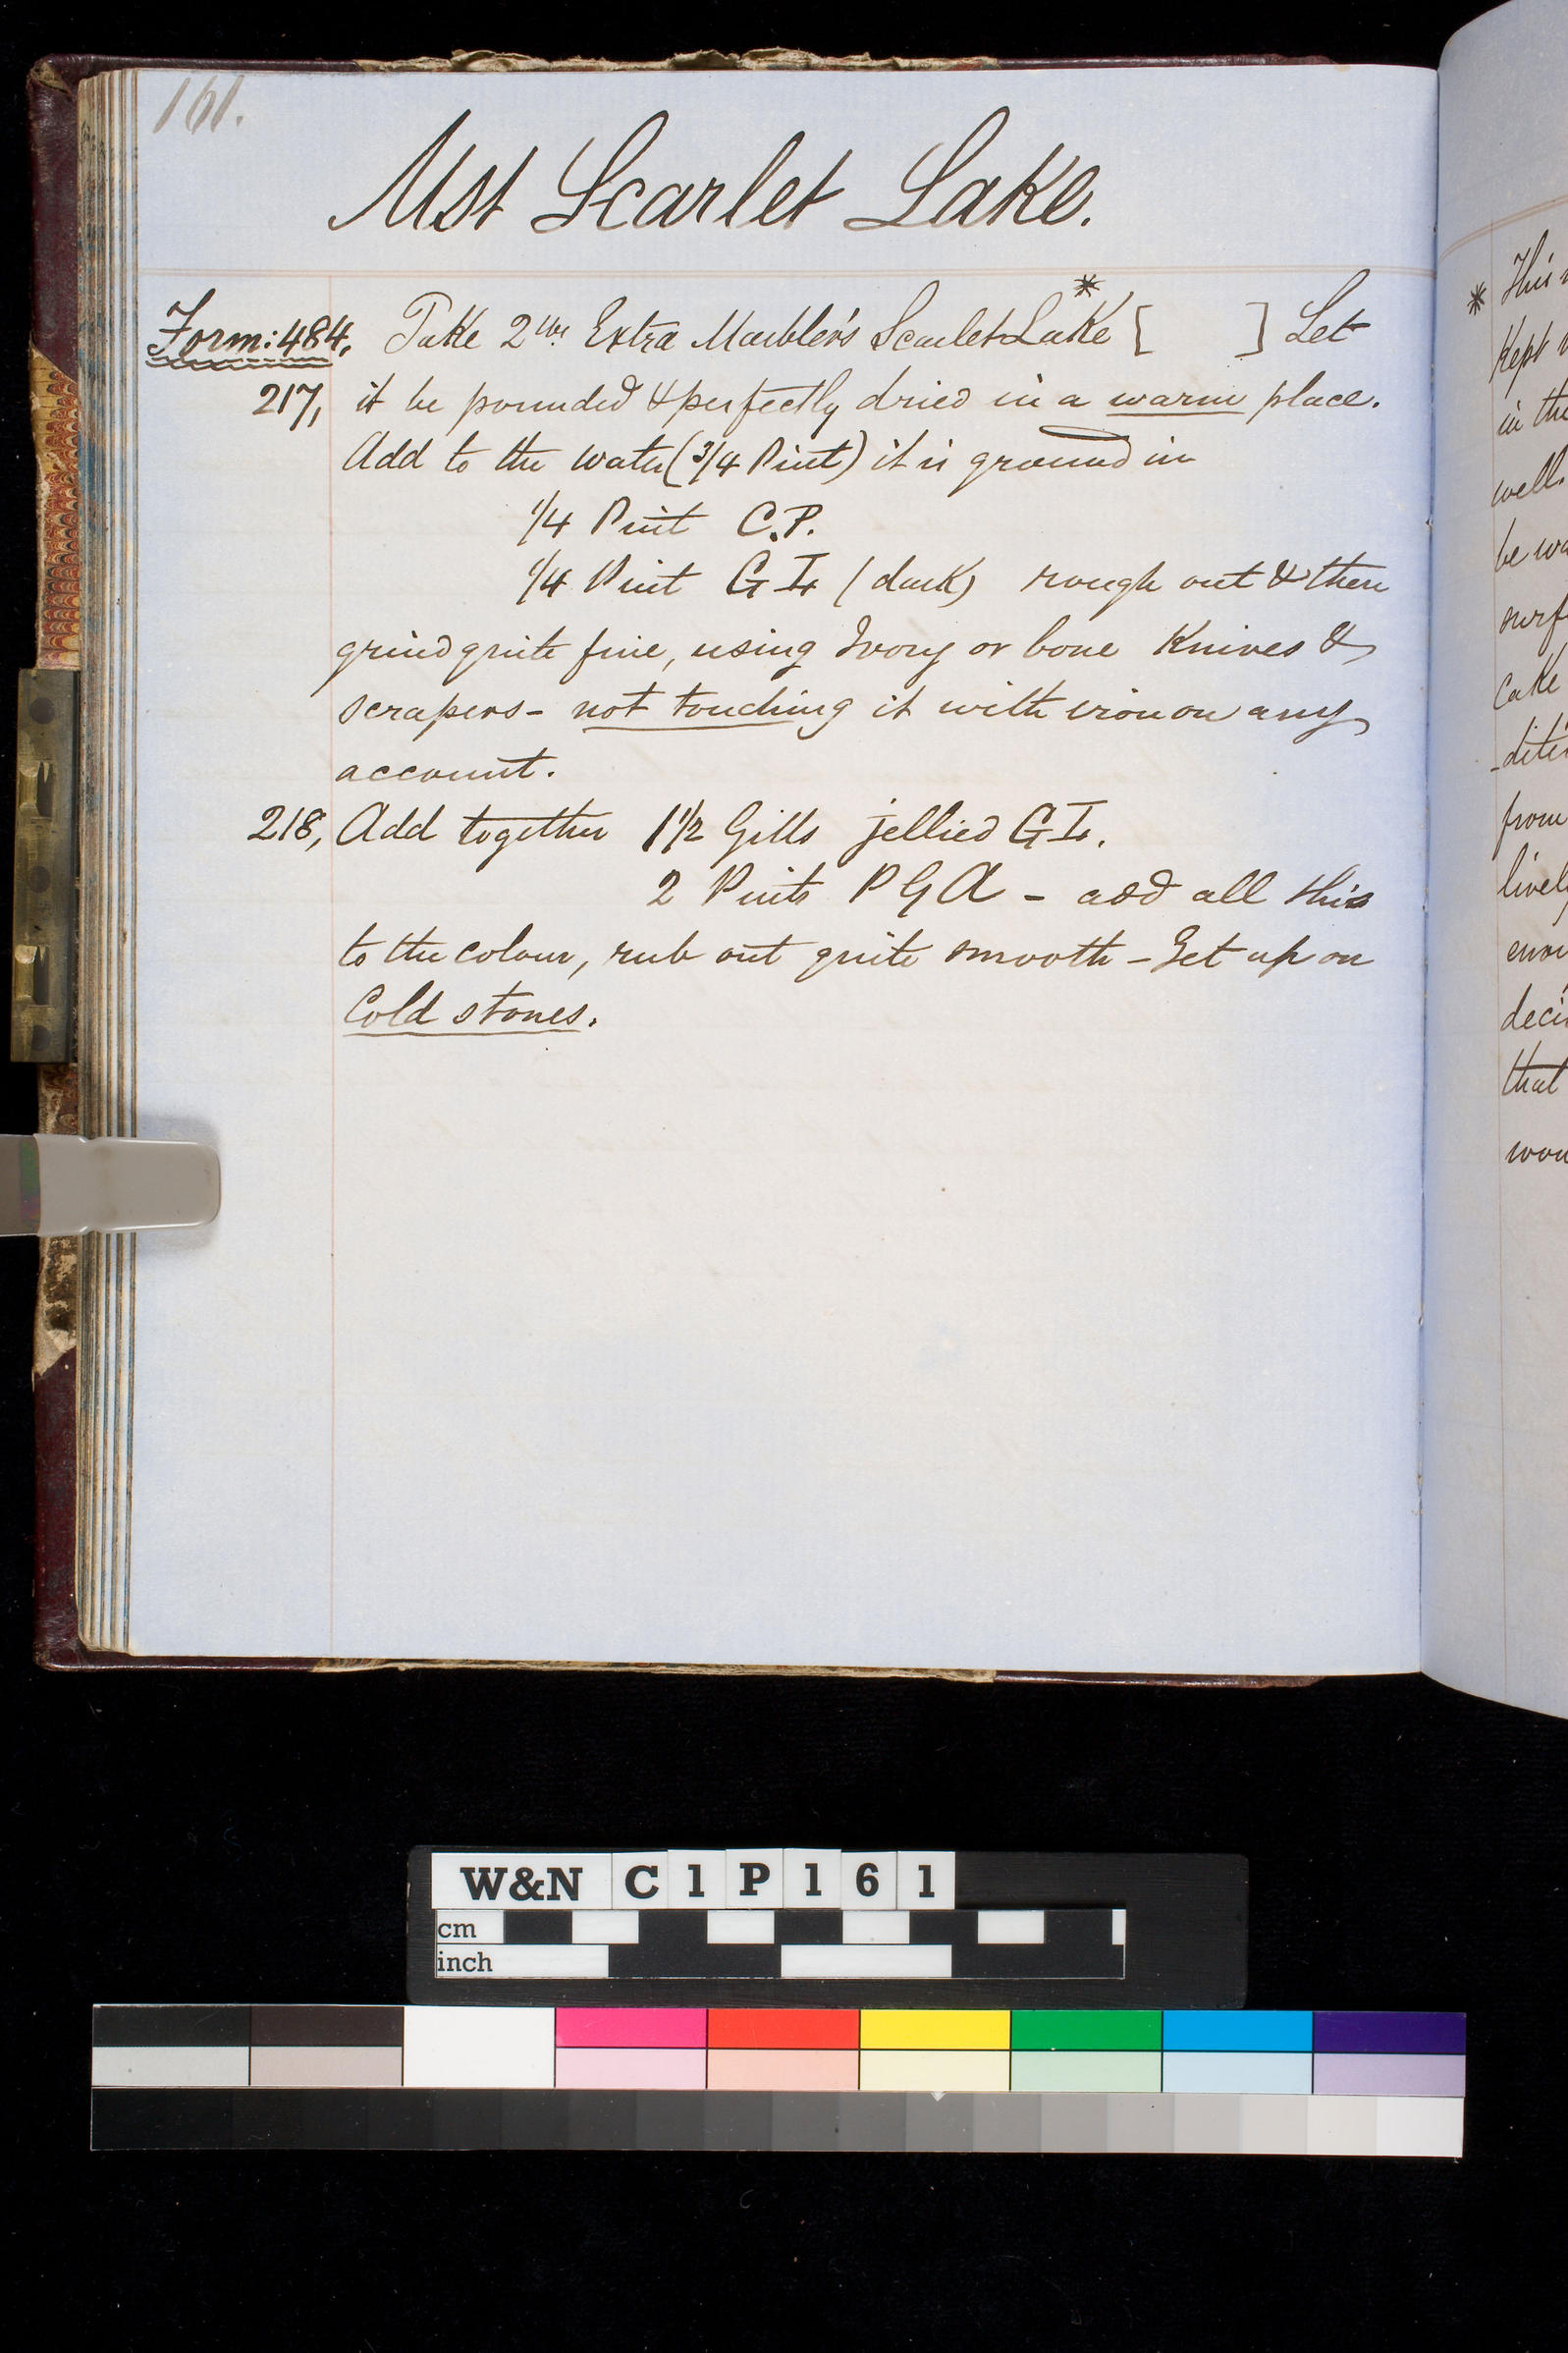 161.
Mst Scarlet Lake.
Form: 484. Take 2 lbs. Extra Marbler's Scarlet Lake* [ ] Let
217, it be pounded & perfectly dried in a warm place.
Add to the water (3/4 Pint) it is ground in
1/4 Pint C.P.
1/4 Pint G I, (dark) rough out & then
grind quite fine, using Ivory or bone Knives &
scrapers - not touching it with iron on any
account.
218, Add together 1 1/2 Gills jellied G I,.
2 Pints P G A - add all this
to the colour, rub out quite smooth - Set up on
Cold stones.
* This
Kept
in the
well.
be
surf
Cake
from
lively
deci
that
W&N C 1 P 1 6 1
cm
inch